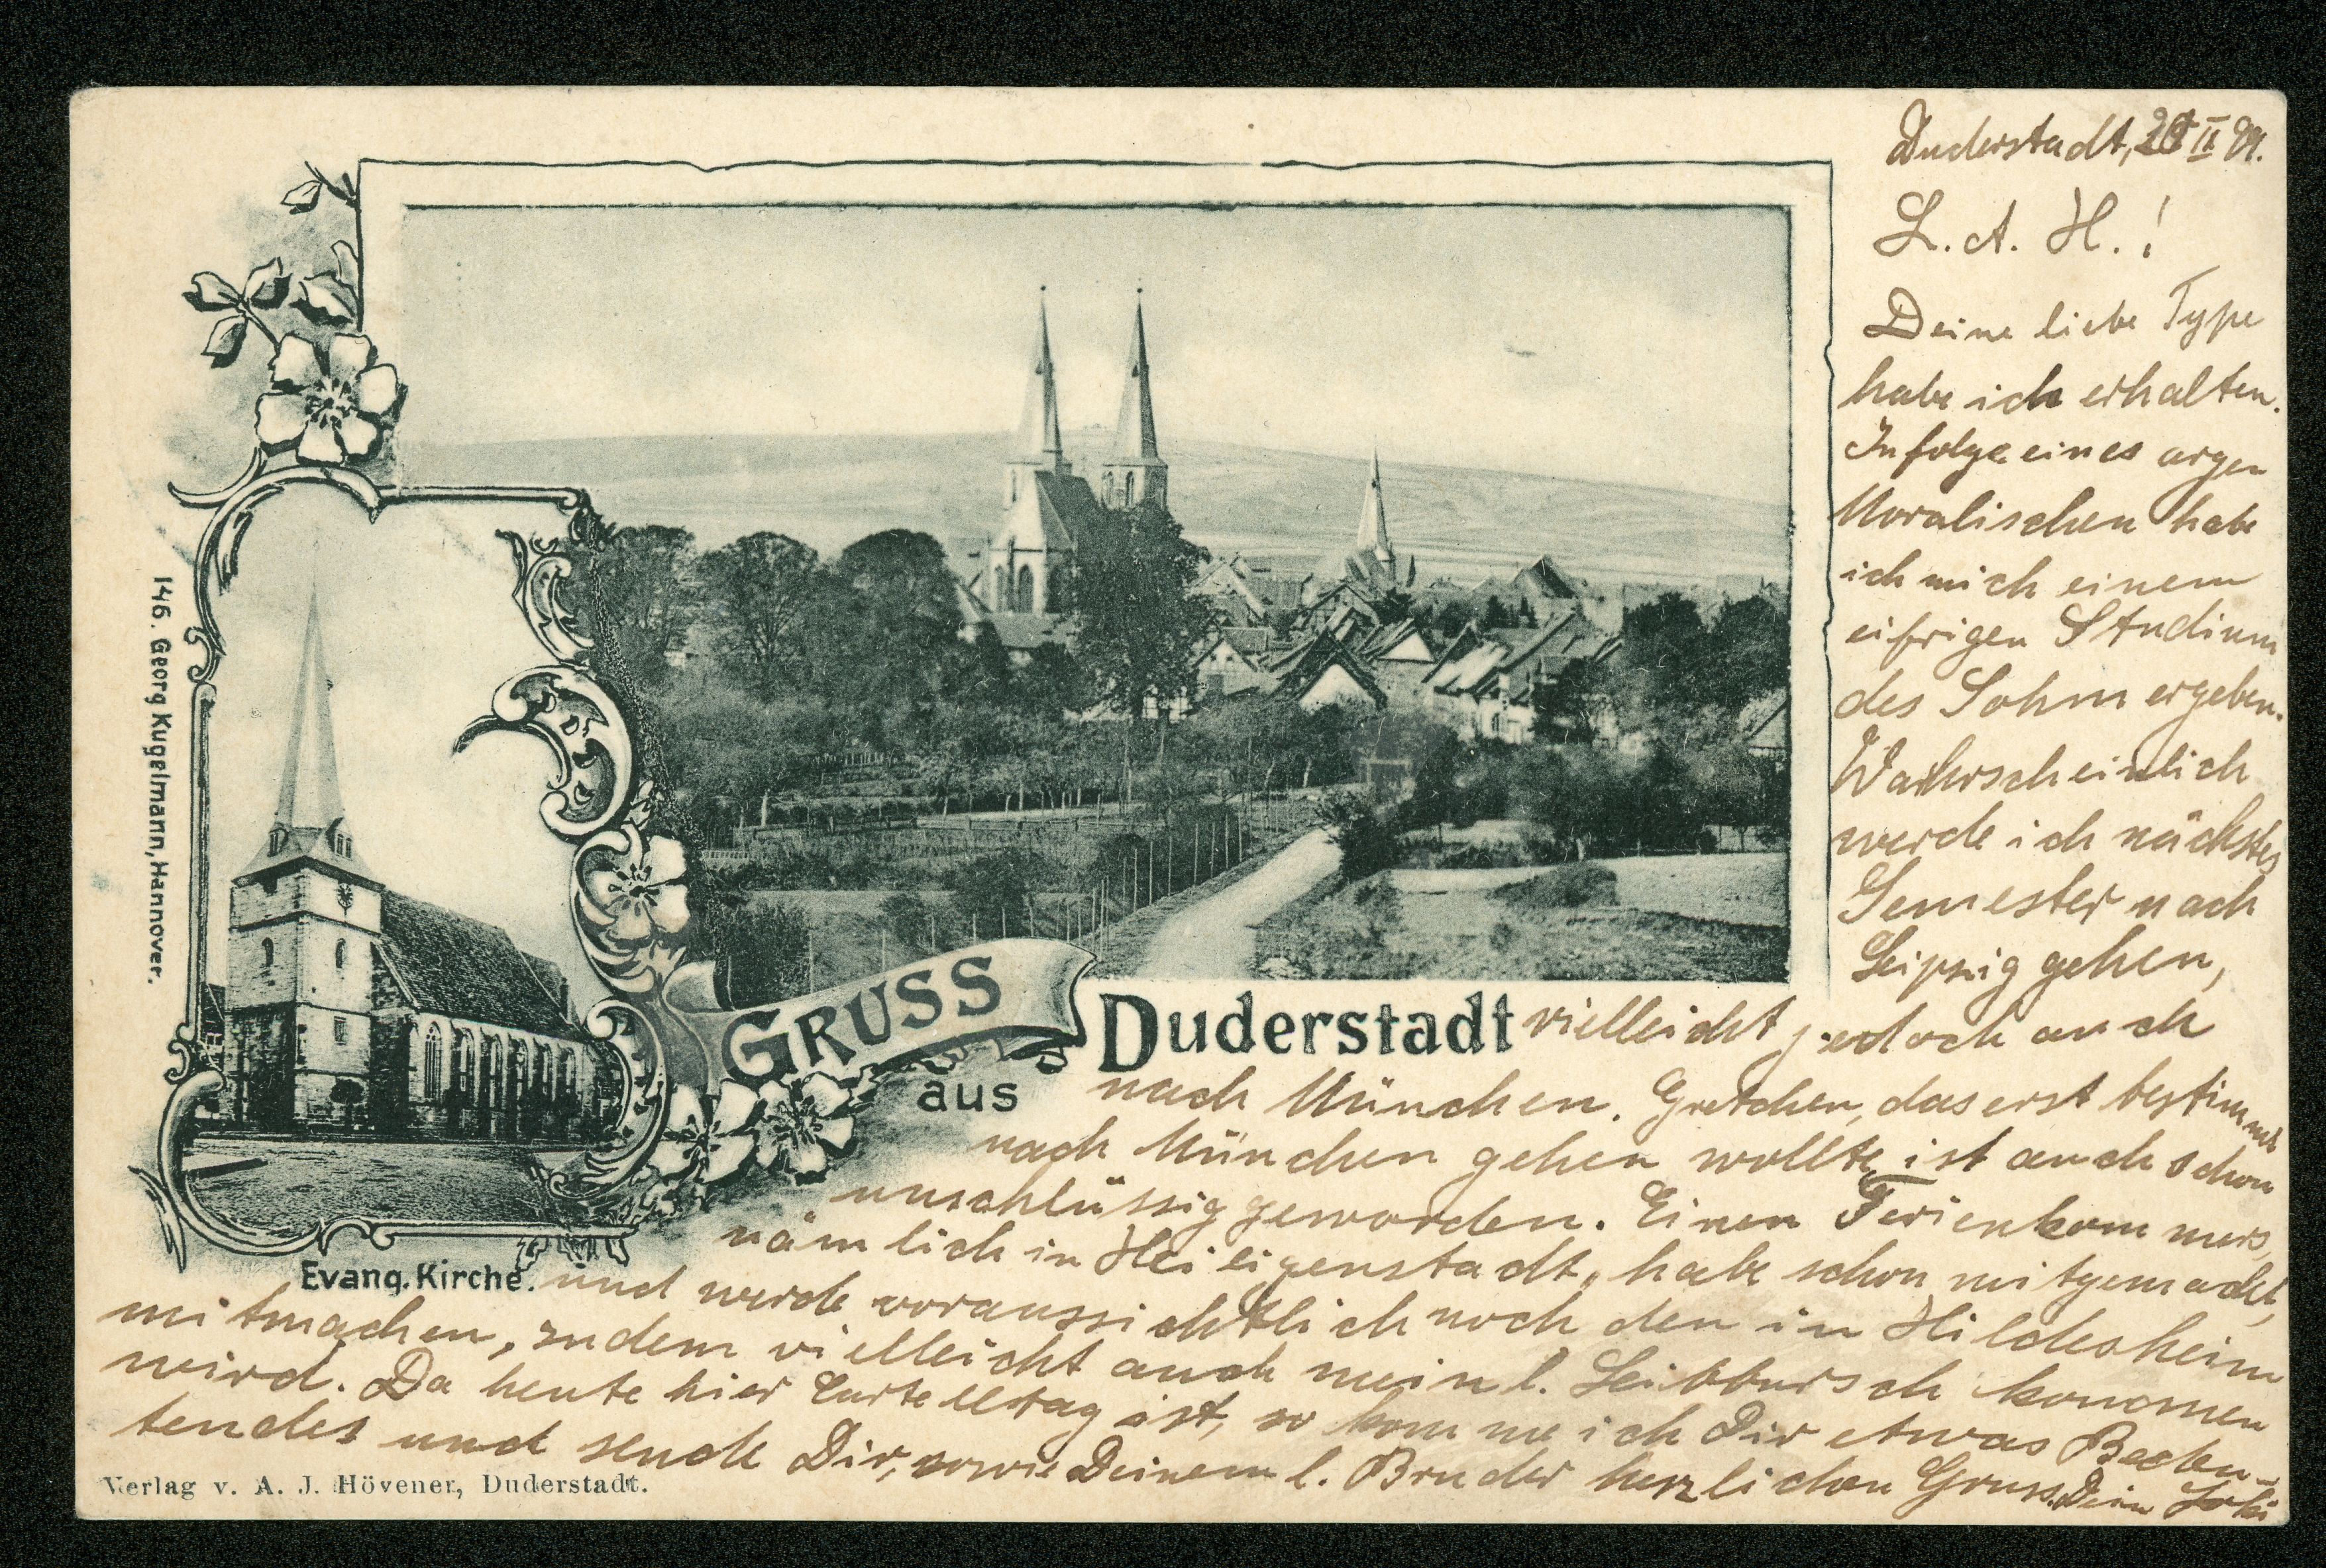 Duderstadt, II 99.
L. A. H.!
Deine liebe Type
habe ich erhalten.
Infolge eines argen
Moralischen habe
ich mich einem
eifrigen Studium
des Sohm ergeben.
Wahrscheinlich
werde ich nächstes
Semester nach
Leipzig gehen,
vielleicht jedoch auch
nach München. Gretchen, das erst bestimmt
nach München gehen wollte, ist auch schon
unschlüssig geworden. Einen Ferienkommers,
nämlich in Heiligenstadt, habe schon mitgemacht,
und werde voraussichtlich noch den in Hildesheim
mitmachen, zudem vielleicht auch mein l. Leibbursch kommen
wird. Da heute hier Cartelltag ist, so komme ich Dir etwas Bedeu-
tendes und sende Dir, sowie Deinem l. Bruder herzlichen Gruss. Dein
GRUSS
aus
Duderstadt
Evang. Kirche.
146. Georg Kugelmann, Hannover.
Verlag v. A. J. Hövener, Duderstadt.